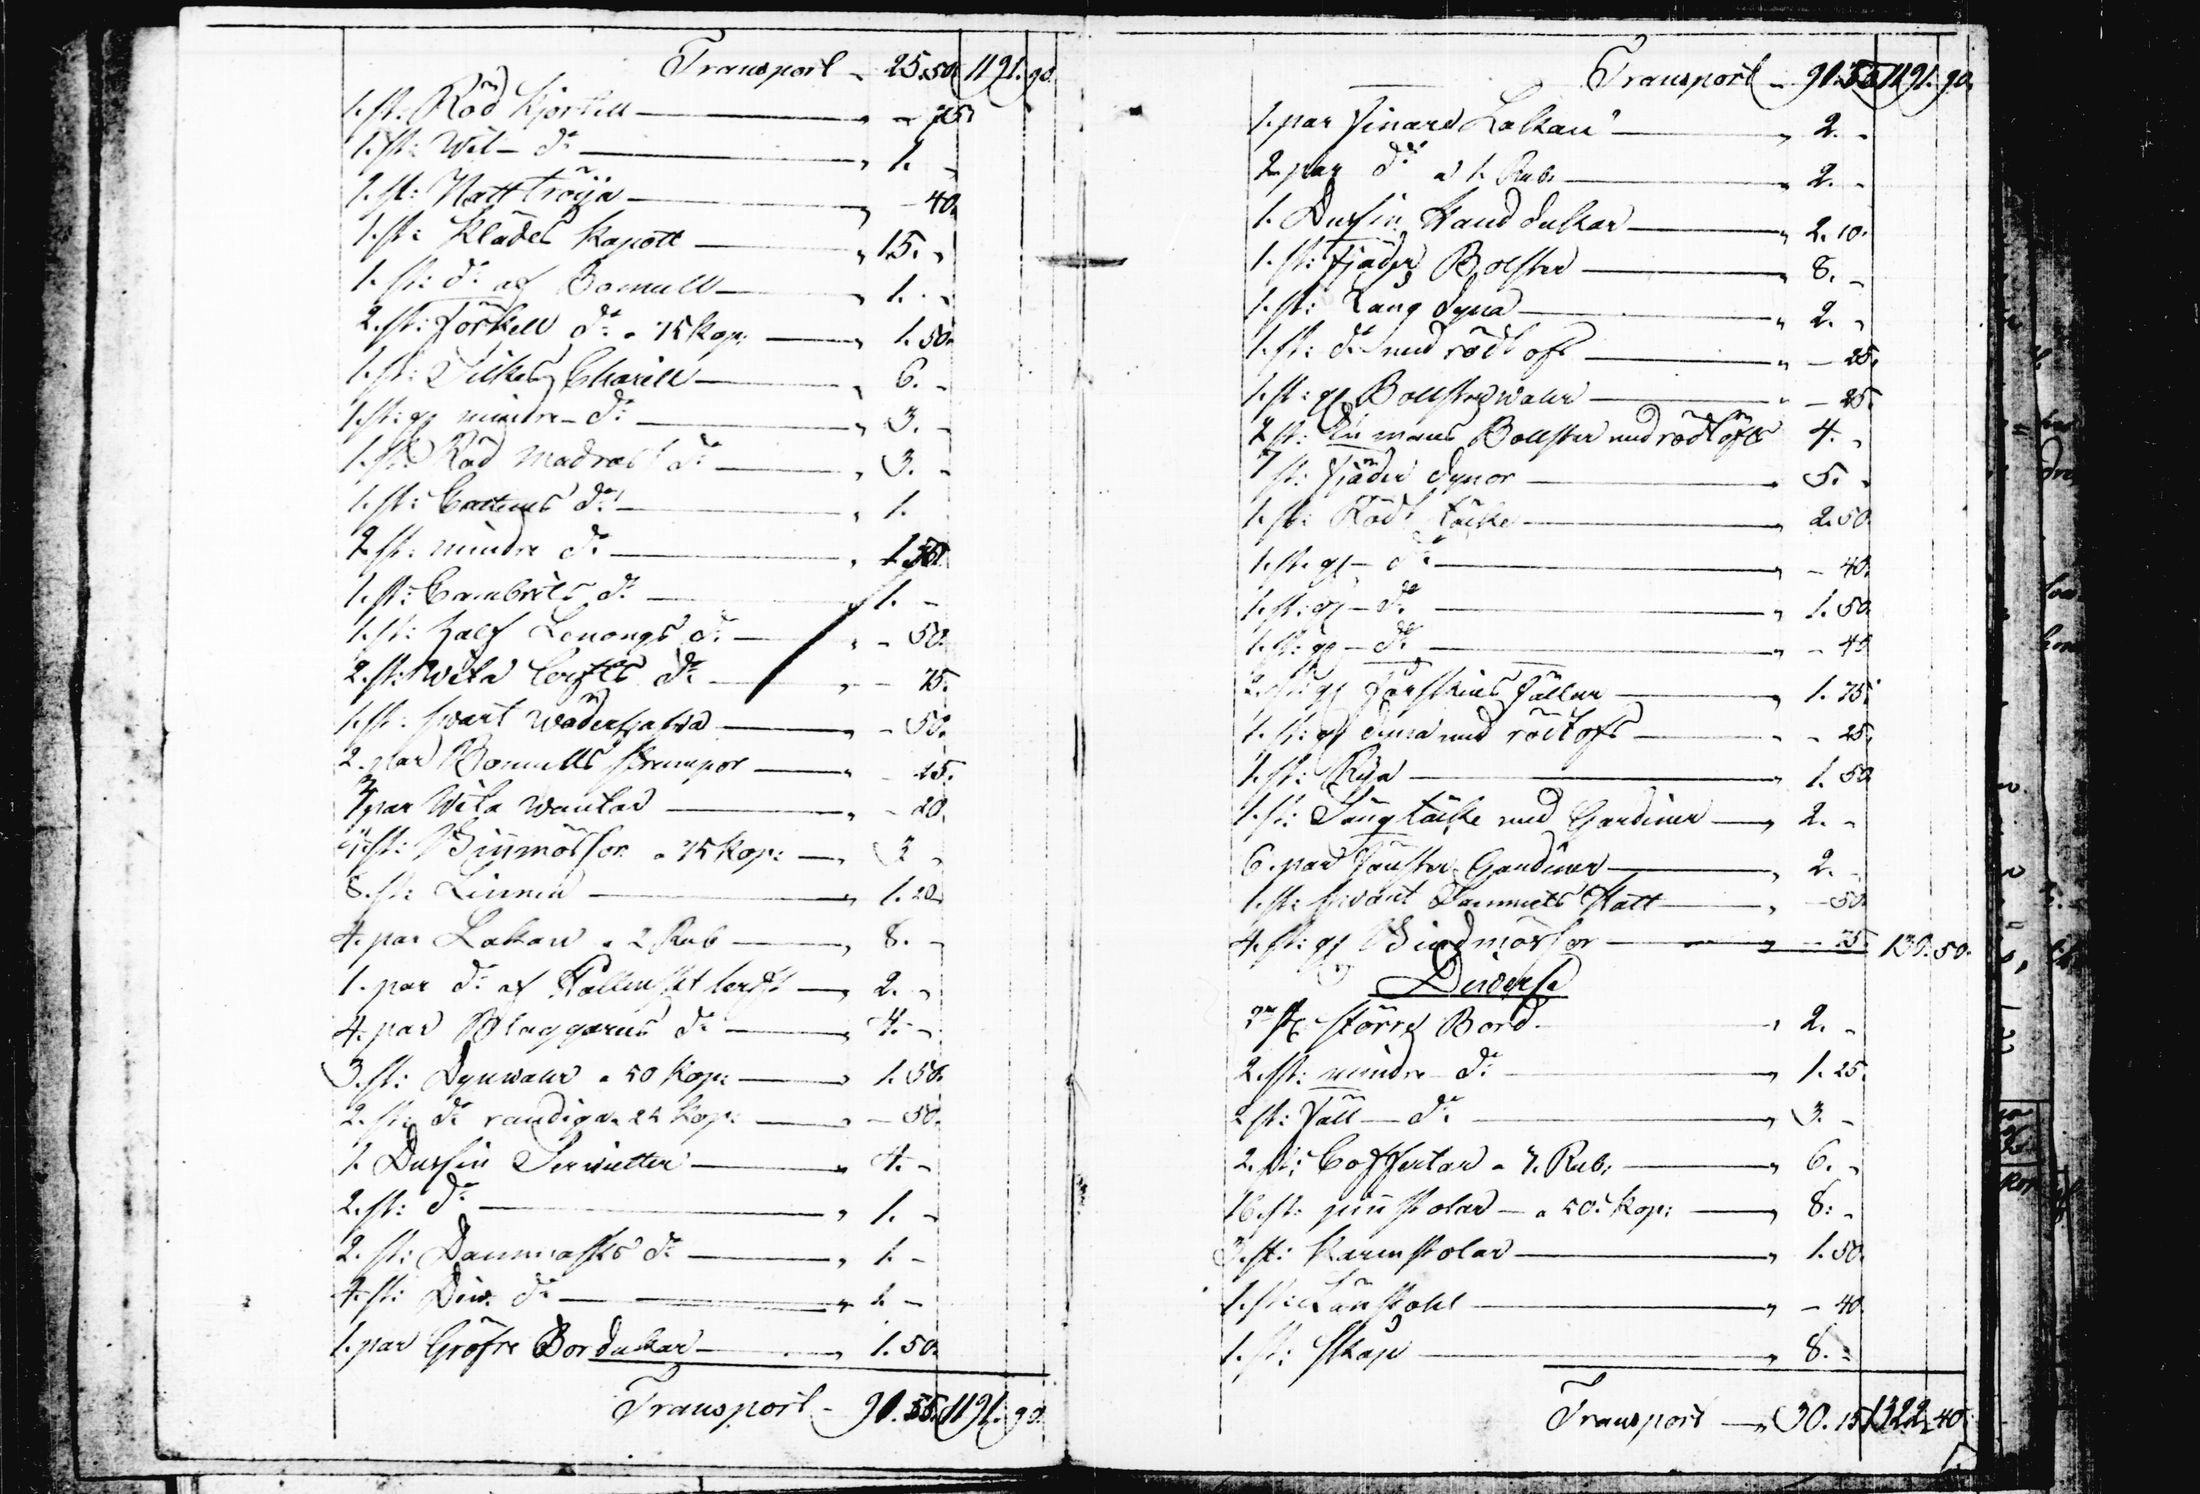 Transport - 25.50. 1191. 90.
1. st: Röd Kjortell — " - 75.
1. st: Wit - d:o — " 1. -
2. st: Natt tröija — " - 40.
1. st: Klädes Kapott — " 15. "
1. st: d:o af Bomull — " 1. "
2. st: Förkell d:o a 75 Kop: — " 1. 50.
1. st: Silkes Charill — " 6. -
1. st: gl mindre - d:o — " 3. -
1. st: Röd Madras d:o — " 3. -
1. st: Cattuns d:o — " 1.
2. st: mindre d:o — " 1. 50.
1. st: Cambriks d:o — " 1. -
1. st: half Lenongs d:o — " - 50.
2. st: Wita d:o — " - 75.
1. st: swart — " - 50.
2. par Bomulls Strumpor — " - 25.
par Wita Wantar — " - 20.
4. st: Binmössor a 75 Kop: — " 3 "
8. st: Linnen — " 1. 20.
4. par Lakan a 2 Rub — " 8. -
1. par d:o af — " 2. "
4. par Blaggarns d:o — " 4. -
3. st: Dynwahr a 50 Kop: — " 1. 50.
2. st: d:o randiga a 25 Kop: — " - 50.
1. Dussin Serwietter — " 4. -
2. st: d:o — " 1. -
2. st: Dammasks d:o — " 1. -
4. st: Diw. d:o — " 1. -
1. par Gröfre Bordukar — " 1. 50.
Transport - 91. 55. 1191. 90.
Transport - 91. 55 1191. 90.
1. par Lakan — " 2. -
2 par d:o a 1. Rub: — " 2. -
1. Dussin Handdukar — " 2. 10.
1. st: fjäder Bolster — " 8. -
1. st: Lång dyna — " 2. "
1. st: d:o med rödt ofs — " - 25.
1. st: gl Bollsterwahr — " - 25.
2 st: En mans Bollster med rödt öfts 4. "
7 st: fjäder dynor — " 5. "
1. st: Rödt täcke — " 2. 50.
1. st: gl - d:o — " - 40.
1. st: gl - d:o — " 1. 50.
1. st: gl - d:o — " - 45
2. st: gl Fårskins Fällar — " 1. 75.
1. st: gl dyna med rödt ofs — " - 25.
1. st: Rya — " 1. 50
1. st: Sängtäcke med Gardiner — " 2. -
6. par fönster Gardiner — " 2. -
1. st: swart Sammets Hatt — " - 50.
4. st: gl Bindmössor — " - 75. 130. 50.
Diverse
2 st större Bord — " 2. -
2. st: mindre d:o — " 1. 25.
2 st: fäll - d:o — " 3. -
2. st: Coffertar a 3. Rub: — " 6. "
16. st: pin stolar - a 50. Kop: — " 8. -
3. st: Karm stolar — " 1. 50.
1. st: Län stohl — " - 40
1. st: Skåp — " 8. -
Transport - " 30. 15 1322. 40.